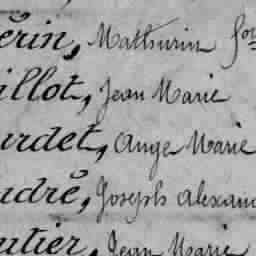 érin, Mathurin
illot, Jean Marie
urdet, Ange Marie
udré, Joseph Alexan
utier, Jean Marie